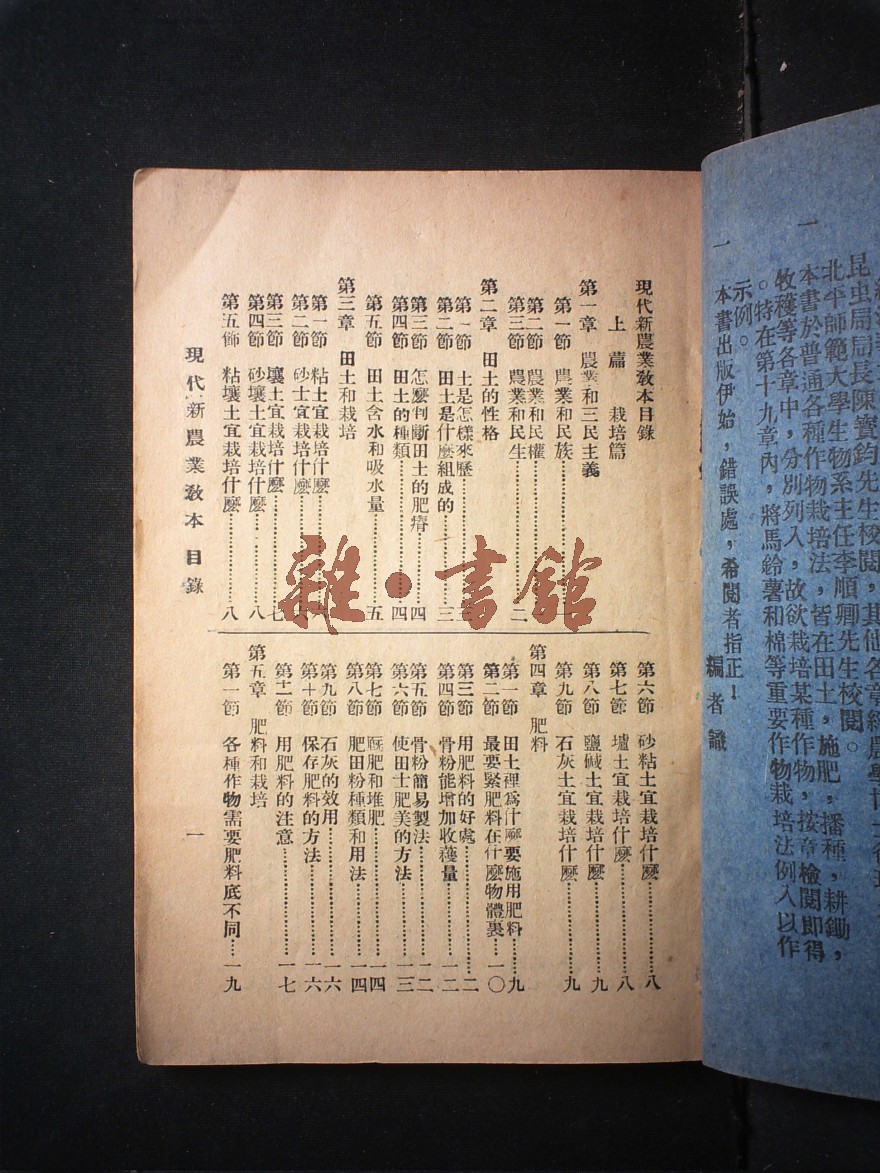 昆虫局局長陳寶鈞先生校閱，其他各章經農學博士
北平師範大學生物系主任李順卿先生校閱。
一　本書於普通各種作物栽培法，皆在田土，施肥，播種，耕鋤，
牧穫等各章中，分別列入，故欲栽培某種作物，按章檢閱即得
。特在第十九章內，將馬鈴薯和棉等重要作物栽培法例入以作
示例。
一　本書出版伊始，錯誤處，希閱者指正！
編者識
現代新農業教本目錄
上篇　栽培篇
第一章　農業和三民主義
第一節　農業和民族
第二節　農業和民權
第三節　農業和民生……二
第二章　田土的性格
第一節　土是怎樣來歷
第二節　田土是什麼組成的……三
第三節　怎麼判斷田土的肥瘠……四
第四節　田土的種類……四
第五節　田土含水和吸水量……五
第三章　田土和栽培
第一節　粘土宜栽培什麼
第二節　砂土宜栽培什麼
第三節　壤土宜栽培什麼……七
第四節　砂壤土宜栽培什麼……八
第五節　粘壤土宜栽培什麼……八
第六節　砂粘土宜栽培什麼……八
第七節　壚土宜栽培什麼……八
第八節　鹽碱土宜栽培什麼……九
第九節　石灰土宜栽培什麼……九
第四章　肥料
第一節　田土裡爲什麼要施用肥料……九
第二節　最要緊肥料在什麼物體裏……一〇
第三節　用肥料的好處……一二
第四節　骨粉能增加收穫量……一二
第五節　骨粉簡易製法……一二
第六節　使田土肥美的方法……一三
第七節　廐肥和堆肥……一四
第八節　肥田粉種類和用法……一四
第九節　石灰的效用……一六
第十節　保存肥料的方法……一六
第十一節　用肥料的注意……一七
第五章　肥料和栽培
第一節　各種作物需要肥料底不同……一九
現代新農業教本　目錄
一
雜·書館